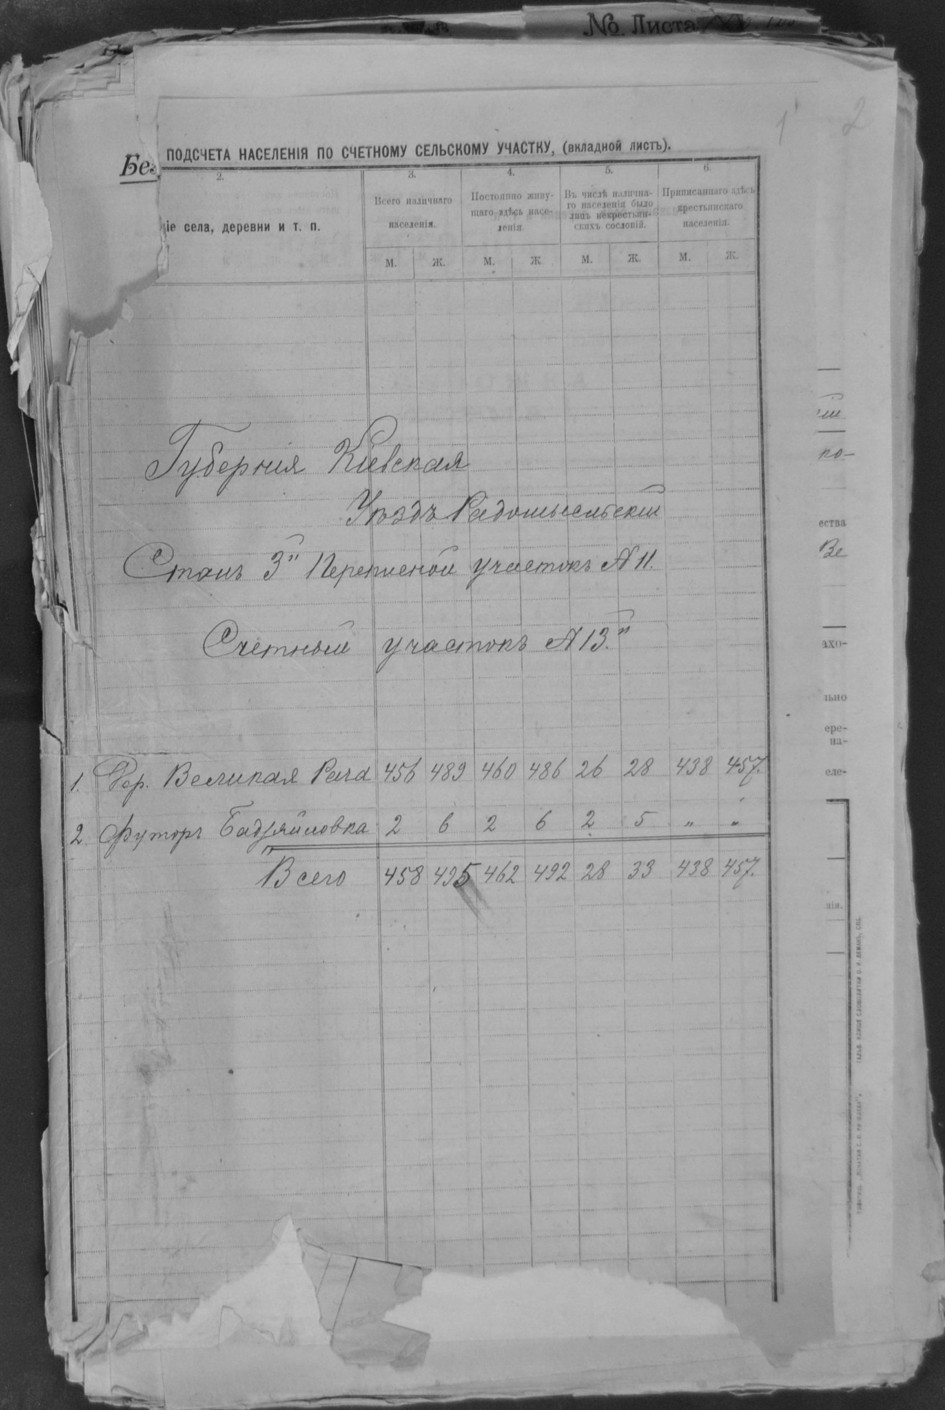 No. Листа
1 2
Без
ПОДСЧЕТА НАСЕЛЕНІЯ ПО СЧЕТНОМУ СЕЛЬСКОМУ УЧАСТКУ, (вкладной листъ).
2. 3. 4. 5. 6.
іе села, деревни и т. п.
Всего наличнаго населенія.
Постоянно живущаго здѣсь населенія.
Въ числѣ наличнаго населенія было лицъ некрестьянскихъ сословій.
Приписаннаго здѣсь крестьянскаго населенія.
М. Ж. М. Ж М. Ж. М. Ж.
Губернія Кіевская
Уѣздъ Радомысльскій
Станъ 3й Переписной участокъ № 11.
Счетный участокъ № 13.й
1. Дер. Великая Рача 456 489 460 486 26 28 438 457.
2 Футоръ 2 6 2 6 2 5 „ „
Всего 458 495 462 492 28 33 438 457.
ко-
ества
Ве
ахо-
льно
ере-
на-
еле-